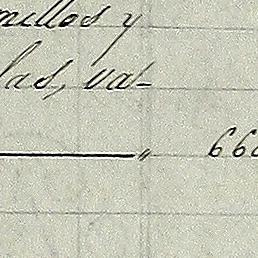 millos y
las, vas-
" 660